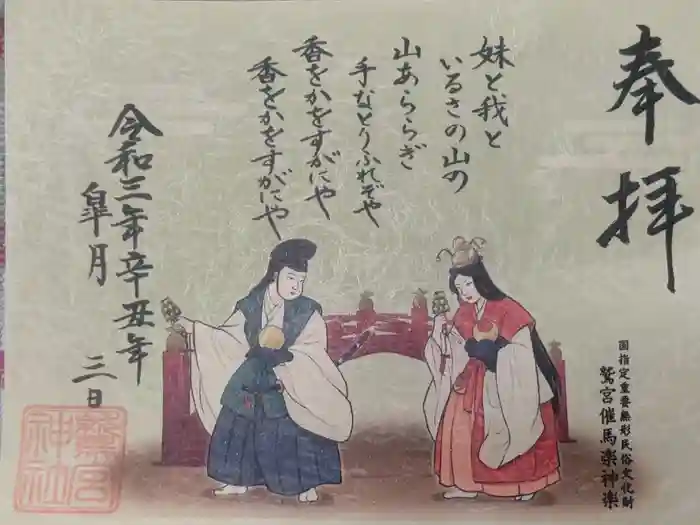 奉拝
国指定重要無形民俗文化財
鷲宮催馬楽神楽
妹と我と
いるさの山の
山あららぎ
手なとりふれぞや
香をかをすがにや
香をかをすがにや
令和三年辛丑年
皐月
三日
鷲宮
神社